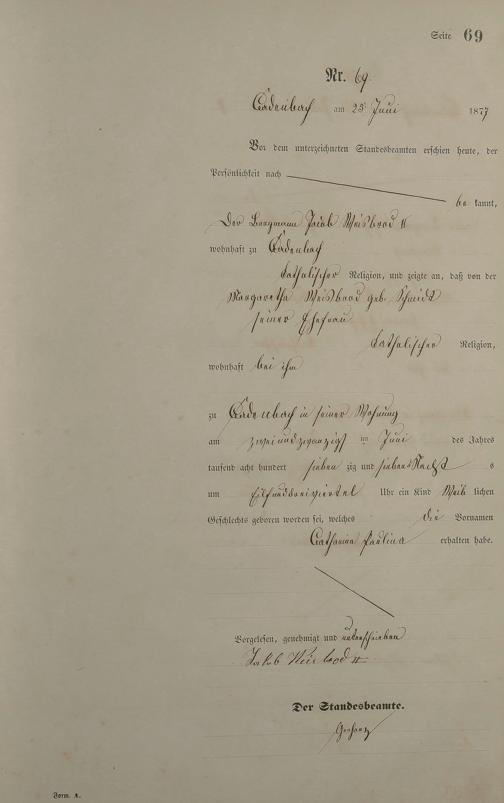 Seite 69
Nr. 69.
Cadenbach am 25. Juni 1877
Vor dem unterzeichneten Standesbeamten erschien heute, der
Persönlichkeit nach
be kannt,
Der Bergmann Jacob Weisbrod II
wohnhaft zu Cadenbach
katholischer Religion, und zeigte an, daß von der
Margaretha Weisbrod geb. Schmidt
seiner Ehefrau
katholischer Religion,
wohnhaft bei ihm
zu Cadenbach in seiner Wohnung
am zweiundzwanzigst en Juni des Jahres
tausend acht hundert sieben zig und sieben Nachts
um Uhr ein Kind Weib lichen
Geschlechts geboren worden sei, welches die Vornamen
Catharina Paulina erhalten habe.
Vorgelesen, genehmigt und unterschrieben
Jakob Weisbrod II
Der Standesbeamte.
Form. A.